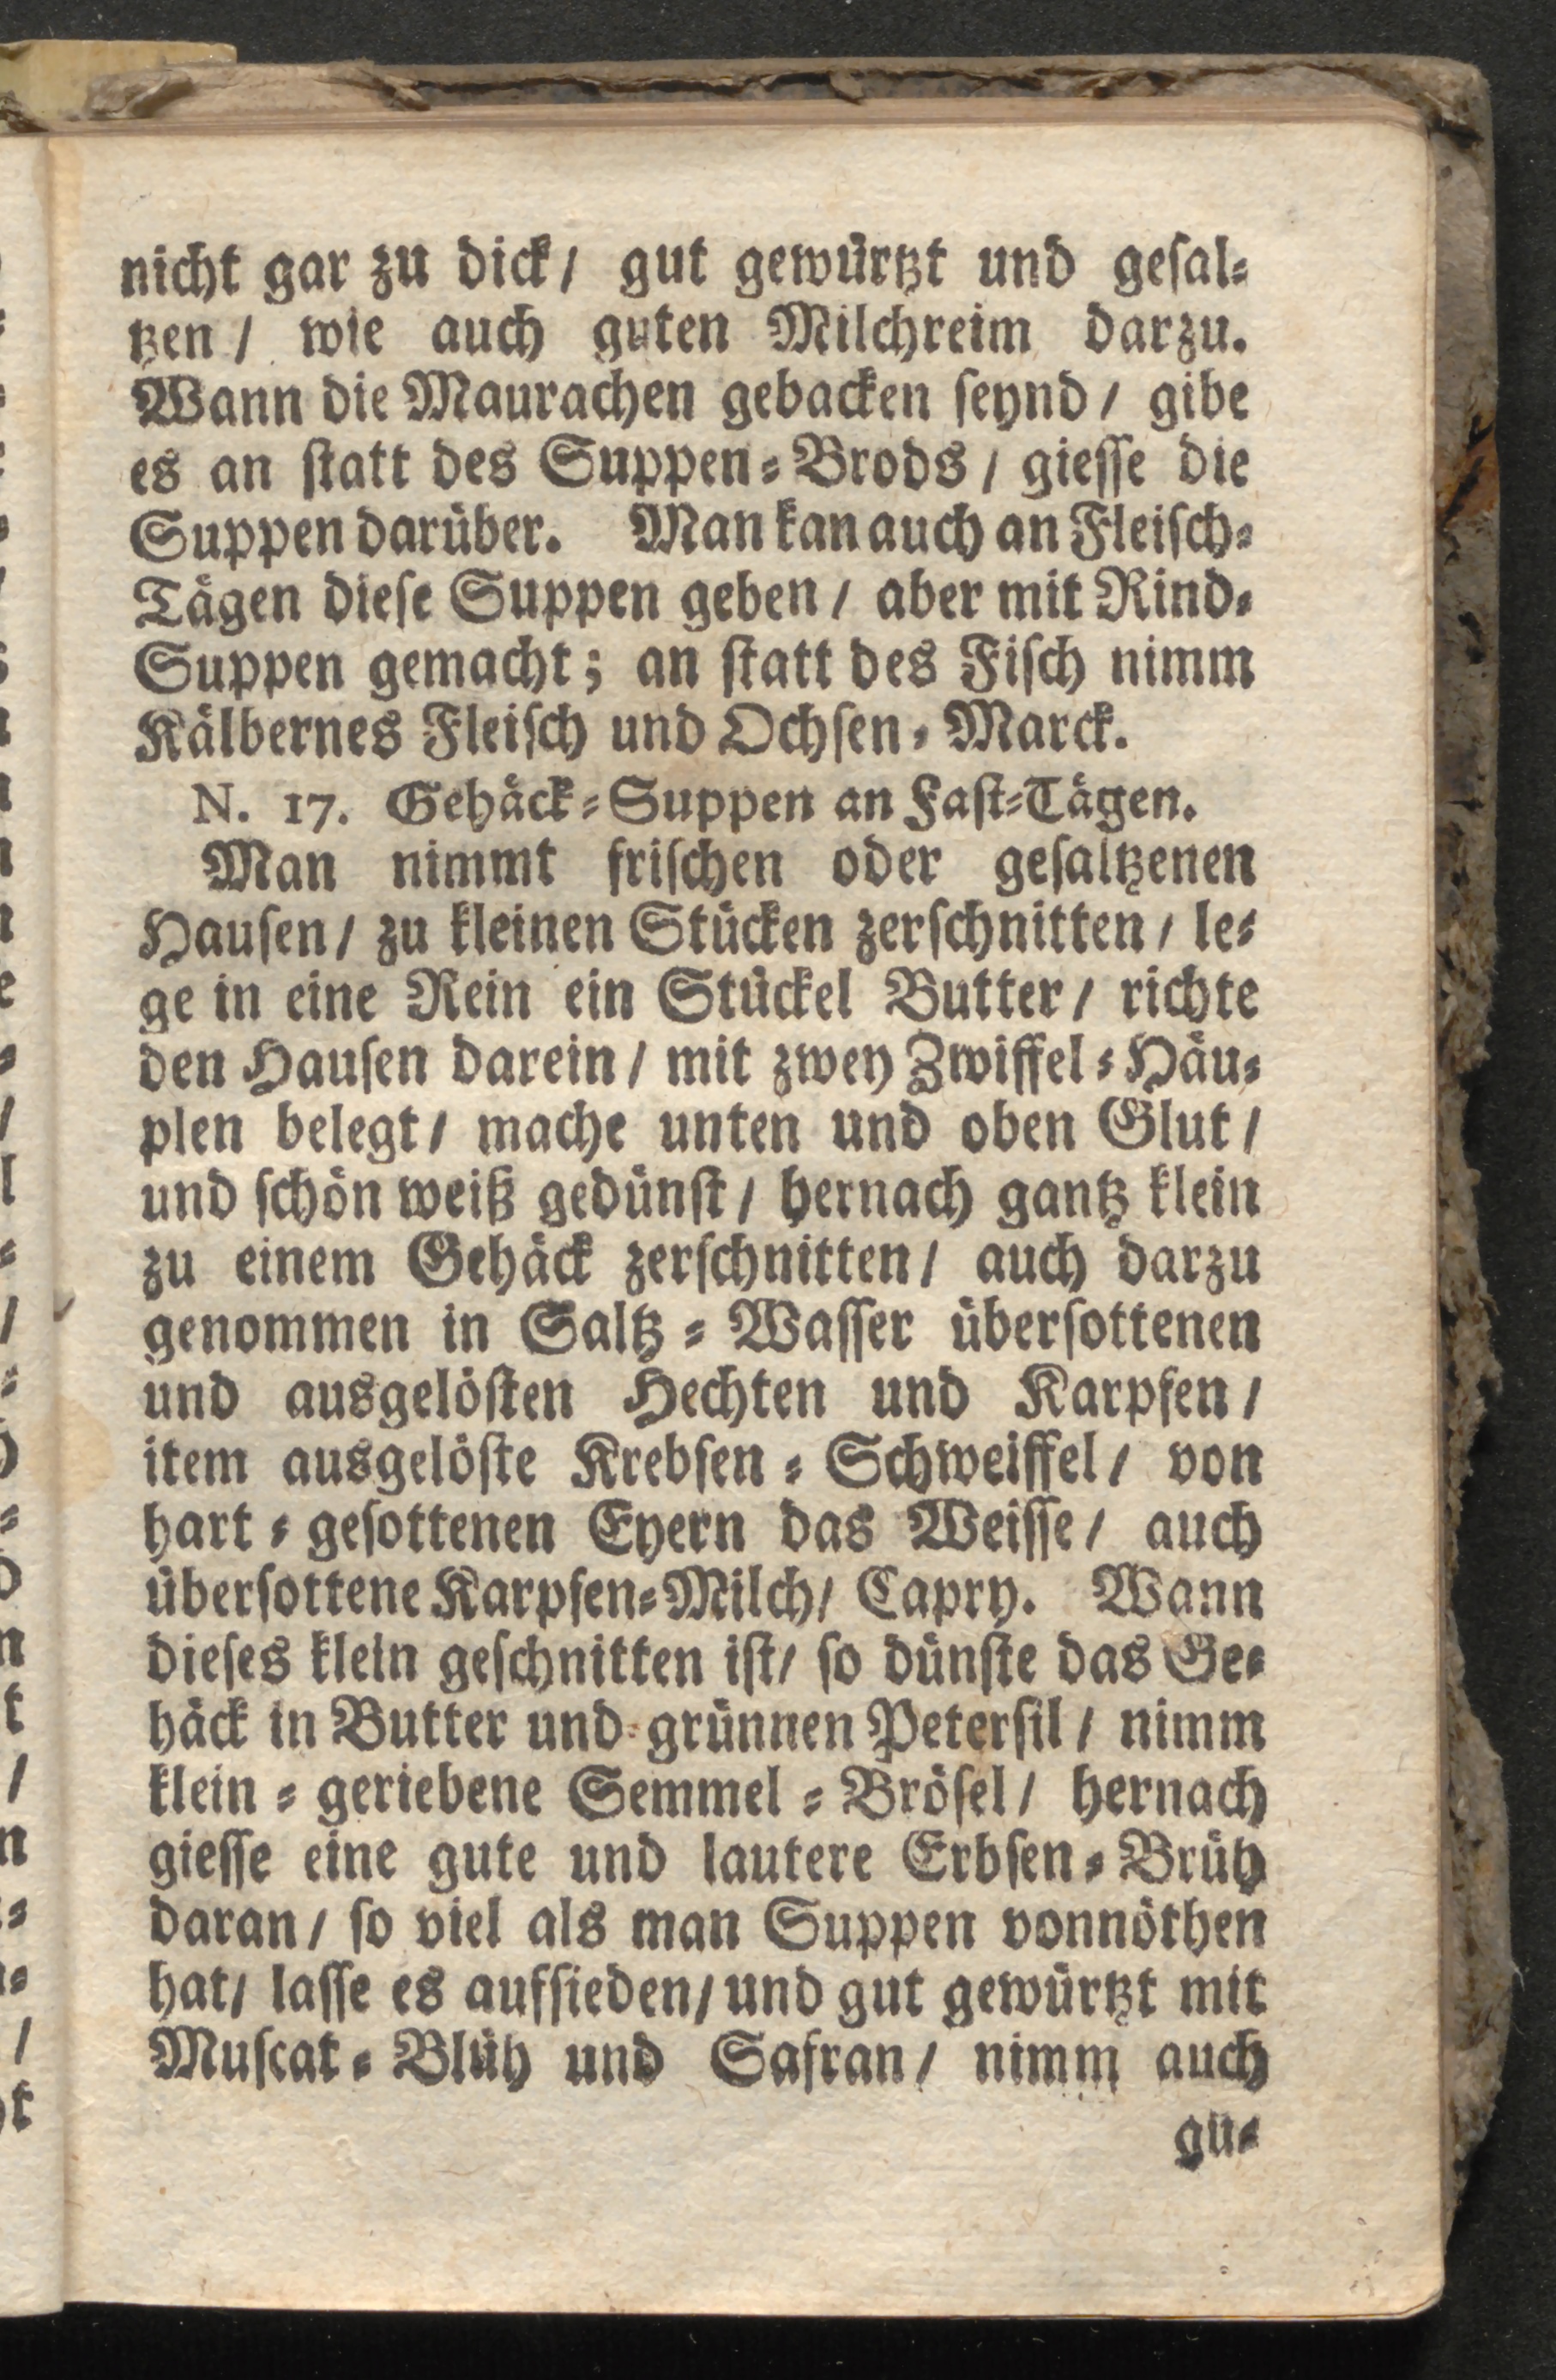 nicht gar zu dick/ gut gewürtzt und gesal-
tzen / wie auch guten Milchreim darzu.
Wann die Maurachen gebacken seynd / gibe
es an statt des Suppen-Brods / giesse die
Suppen darüber. Man kan auch an Fleisch-
Tägen diese Suppen geben / aber mit Rind-
Suppen gemacht; an statt des Fisch nimm
Kälbernes Fleisch und Ochsen-Marck.
N. 17. Gehäck-Suppen an Fast-Tägen.
Man nimmt frischen oder gesaltzenen
Hausen / zu kleinen Stücken zerschnitten / le-
ge in eine Rein ein Stückel Butter / richte
den Hausen darein / mit zwey Zwiffel-Häu-
plen belegt / mache unten und oben Glut /
und schön weiß gedünst / hernach gantz klein
zu einem Gehäck zerschnitten / auch darzu
genommen in Saltz-Wasser übersottenen
und ausgelösten Hechten und Karpfen /
item ausgelöste Krebsen-Schweiffel / von
hart-gesottenen Eyern das Weisse / auch
übersottene Karpfen-Milch / Capry. Wann
dieses klein geschnitten ist / so dünste das Ge-
häck in Butter und grünnen Petersil / nimm
klein-geriebene Semmel-Brösel / hernach
giesse eine gute und lautere Erbsen-Brüh
daran / so viel als man Suppen vonnöthen
hat / lasse es aufsieden / und gut gewürtzt mit
Muscat-Blüh und Safran / nimm auch
gu-